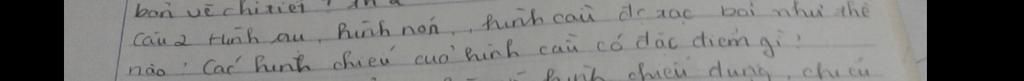 bản vẽ chi tiết
câu 2 Hình trụ, hình nón, hình cầu đc xác bởi như thế
nào? Các hình chiếu của hình cầu có đặc điểm gì?
hình chiếu đứng, chiếu